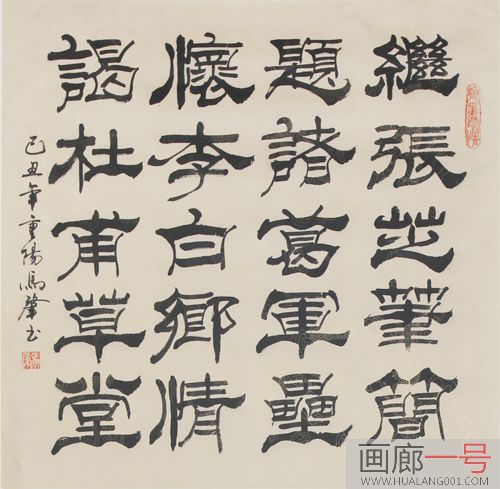 繼張芝筆簡
題諸葛軍壘
懷李白鄉情
謁杜甫草堂
己丑年重陽肇书
画廊一号
WWW.HUALANG001.COM